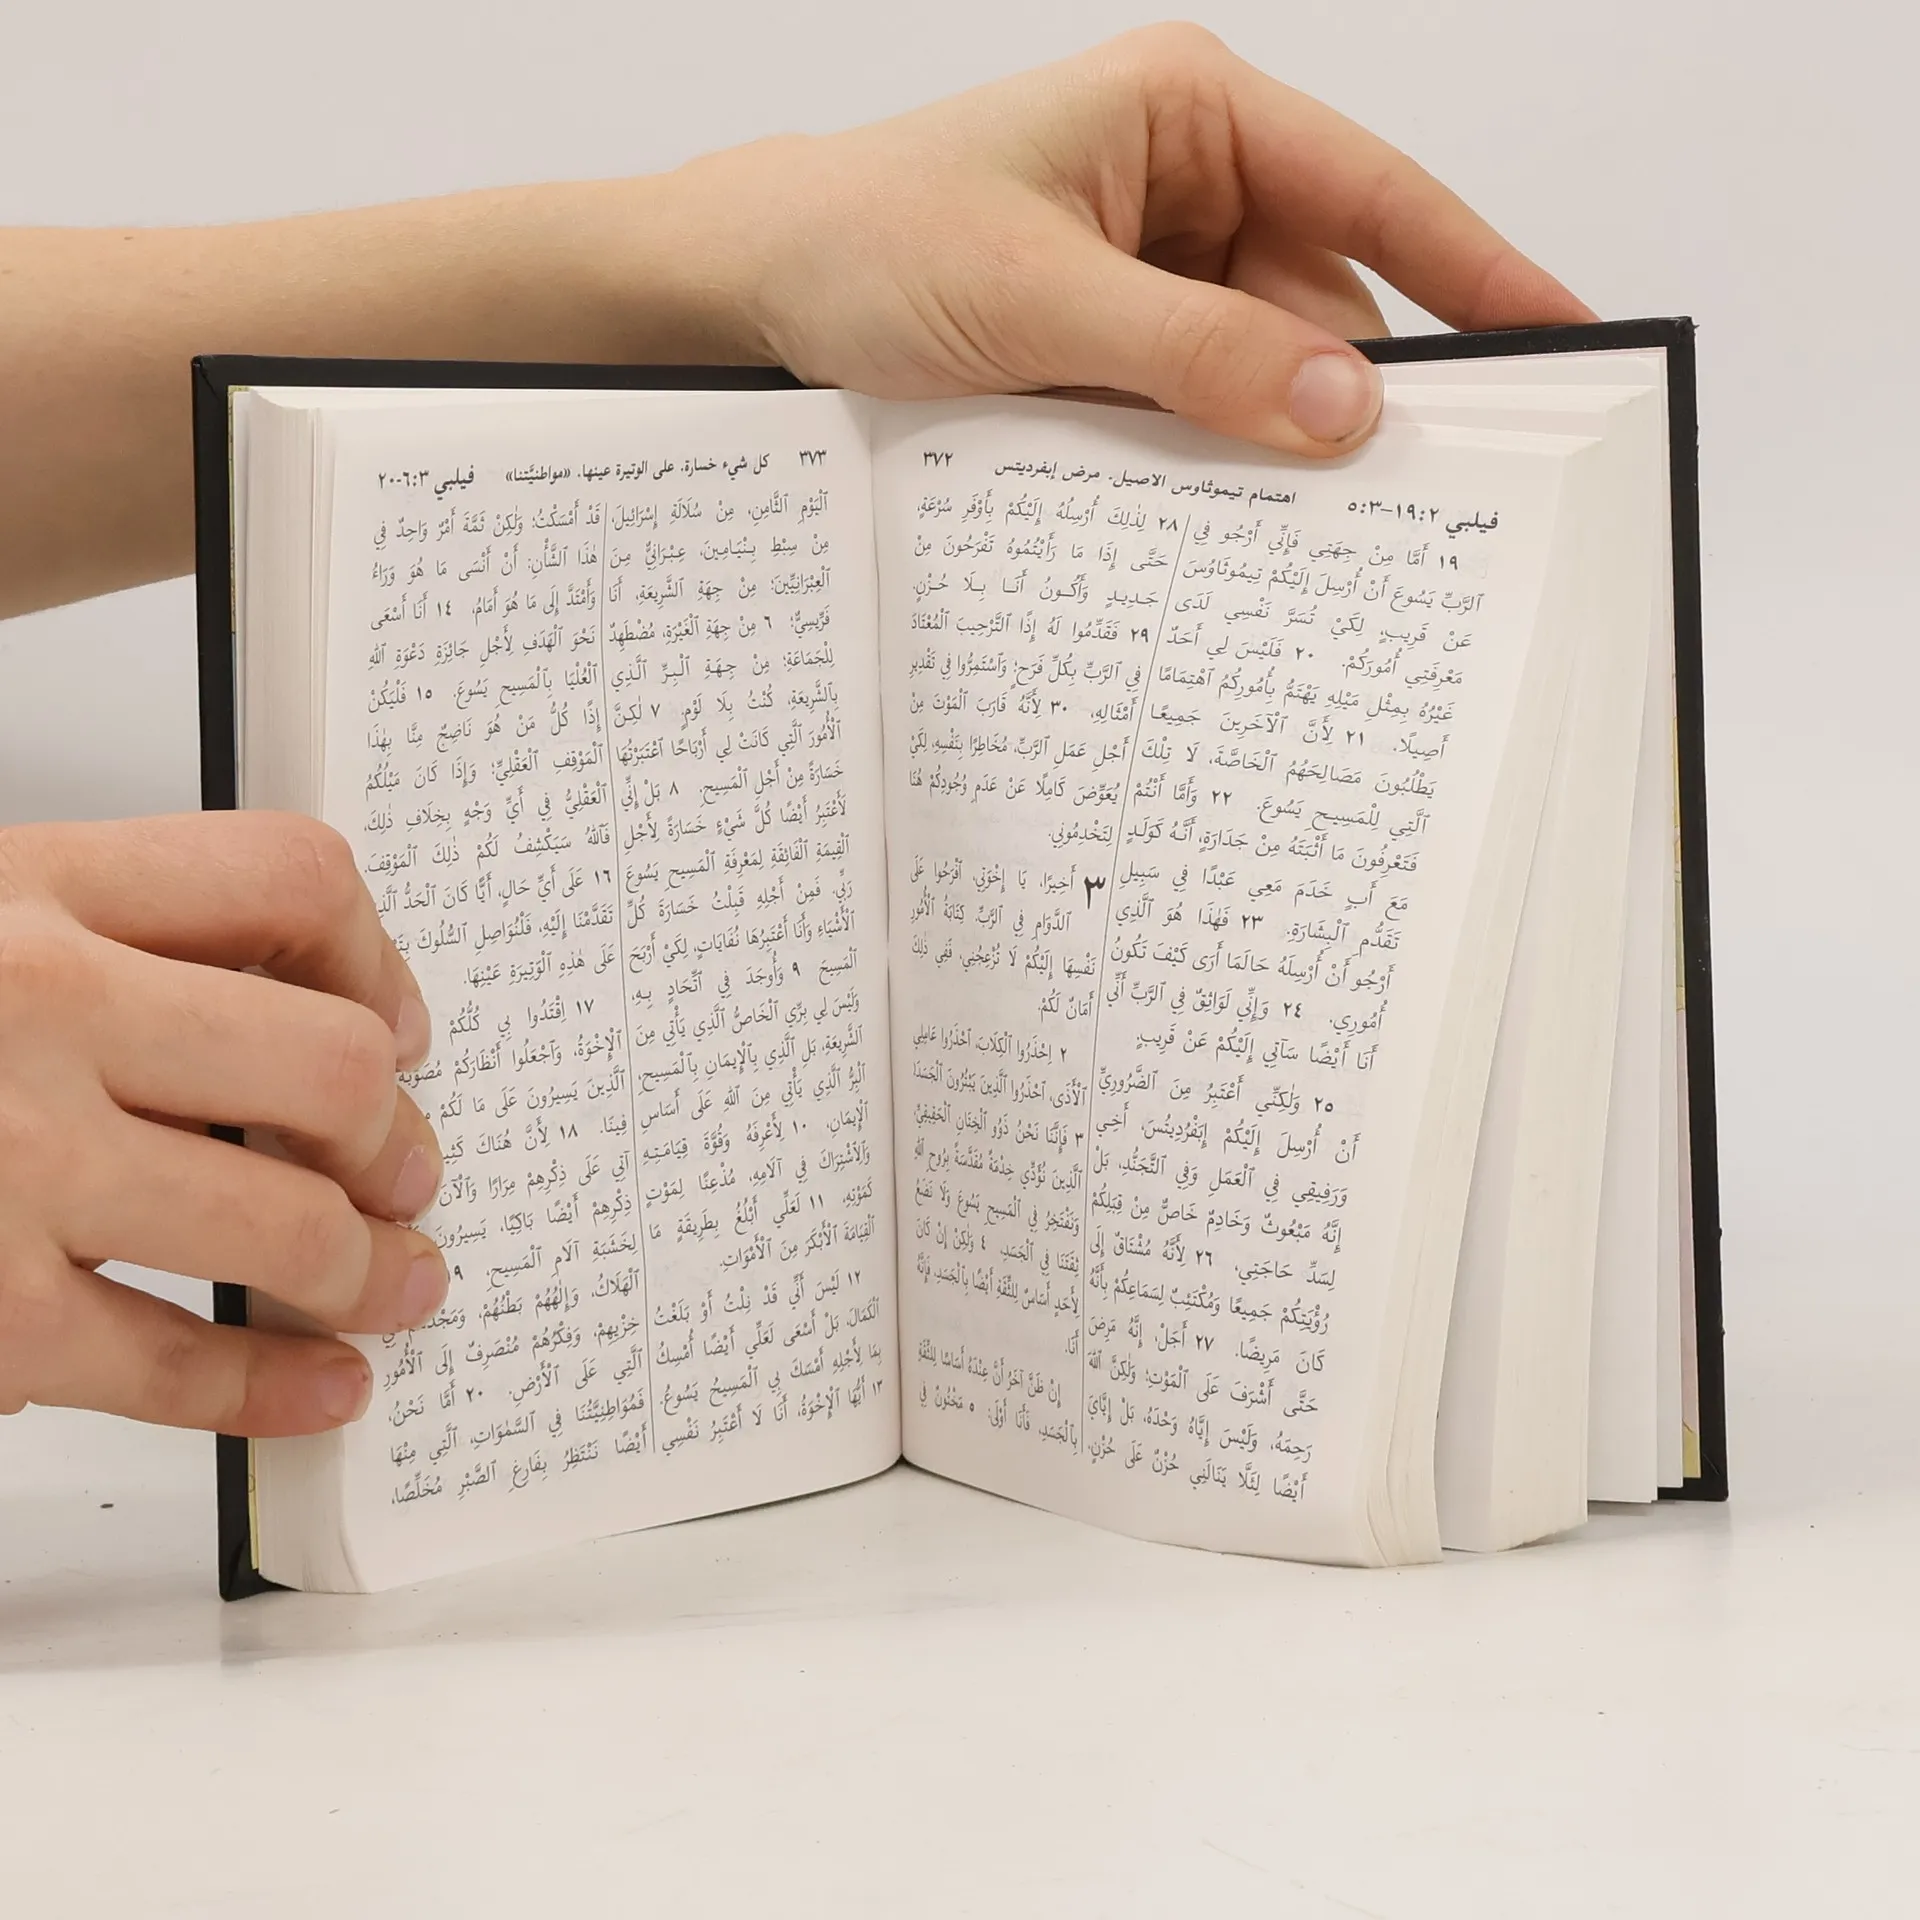 فيلبي ٢:‏١٩–‏٣:‏٥ اهتمام تيموثاوس الاصيل. مرض إبفرديتس ٣٧٢
١٩ أَمَّا مِنْ جِهَتِي فَإِنِّي أَرْجُو فِي
ٱلرَّبِّ يَسُوعَ أَنْ أُرْسِلَ إِلَيْكُمْ تِيمُوثَاوُسَ
عَنْ قَرِيبٍ، لِكَيْ تُسَرَّ نَفْسِي لَدَى
مَعْرِفَتِي أُمُورَكُمْ. ٢٠ فَلَيْسَ لِي أَحَدٌ
غَيْرُهُ بِمِثْلِ مَيْلِهِ يَهْتَمُّ بِأُمُورِكُمُ ٱهْتِمَامًا
أَصِيلًا. ٢١ لِأَنَّ ٱلْآخَرِينَ جَمِيعًا
يَطْلُبُونَ مَصَالِحَهُمُ ٱلْخَاصَّةَ، لَا تِلْكَ
ٱلَّتِي لِلْمَسِيحِ يَسُوعَ. ٢٢ وَأَمَّا أَنْتُمْ
فَتَعْرِفُونَ مَا أَثْبَتَهُ مِنْ جَدَارَةٍ، أَنَّهُ كَوَلَدٍ
مَعَ أَبٍ خَدَمَ مَعِي عَبْدًا فِي سَبِيلِ
تَقَدُّمِ ٱلْبِشَارَةِ. ٢٣ فَهٰذَا هُوَ ٱلَّذِي
أَرْجُو أَنْ أُرْسِلَهُ حَالَمَا أَرَى كَيْفَ تَكُونُ
أُمُورِي. ٢٤ وَإِنِّي لَوَاثِقٌ فِي ٱلرَّبِّ أَنِّي
أَنَا أَيْضًا سَآتِي إِلَيْكُمْ عَنْ قَرِيبٍ.
٢٥ وَلٰكِنِّي أَعْتَبِرُ مِنَ ٱلضَّرُورِيِّ
أَنْ أُرْسِلَ إِلَيْكُمْ إِبَفْرُدِيتُسَ، أَخِي
وَرَفِيقِي فِي ٱلْعَمَلِ وَفِي ٱلتَّجَنُّدِ، بَلْ
إِنَّهُ مَبْعُوثٌ وَخَادِمٌ خَاصٌّ مِنْ قِبَلِكُمْ
لِسَدِّ حَاجَتِي، ٢٦ لِأَنَّهُ مُشْتَاقٌ إِلَى
رُؤْيَتِكُمْ جَمِيعًا وَمُكْتَئِبٌ لِسَمَاعِكُمْ بِأَنَّهُ
كَانَ مَرِيضًا. ٢٧ أَجَلْ، إِنَّهُ مَرِضَ
حَتَّى أَشْرَفَ عَلَى ٱلْمَوْتِ؛ وَلٰكِنَّ ٱللّٰهَ
رَحِمَهُ، وَلَيْسَ إِيَّاهُ وَحْدَهُ، بَلْ إِيَّايَ
أَيْضًا لِئَلَّا يَنَالَنِي حُزْنٌ عَلَى حُزْنٍ.
٢٨ لِذٰلِكَ أُرْسِلُهُ إِلَيْكُمْ بِأَوْفَرِ سُرْعَةٍ،
حَتَّى إِذَا مَا رَأَيْتُمُوهُ تَفْرَحُونَ مِنْ
جَدِيدٍ وَأَكُونُ أَنَا بِلَا حُزْنٍ.
٢٩ فَقَدِّمُوا لَهُ إِذًا ٱلتَّرْحِيبَ ٱلْمُعْتَادَ
فِي ٱلرَّبِّ بِكُلِّ فَرَحٍ؛ وَٱسْتَمِرُّوا فِي تَقْدِيرِ
أَمْثَالِهِ، ٣٠ لِأَنَّهُ قَارَبَ ٱلْمَوْتَ مِنْ
أَجْلِ عَمَلِ ٱلرَّبِّ، مُخَاطِرًا بِنَفْسِهِ، لِكَيْ
يُعَوِّضَ كَامِلًا عَنْ عَدَمِ وُجُودِكُمْ هُنَا
لِتَخْدِمُونِي.
٣ أَخِيرًا، يَا إِخْوَتِي، ٱفْرَحُوا عَلَى
ٱلدَّوَامِ فِي ٱلرَّبِّ. كِتَابَةُ ٱلْأُمُورِ
نَفْسِهَا إِلَيْكُمْ لَا تُزْعِجُنِي، فَفِي ذٰلِكَ
أَمَانٌ لَكُمْ.
٢ اِحْذَرُوا ٱلْكِلَابَ، ٱحْذَرُوا عَامِلِي
ٱلْأَذَى، ٱحْذَرُوا ٱلَّذِينَ يَبْتُرُونَ ٱلْجَسَدَ.
٣ فَإِنَّنَا نَحْنُ ذَوُو ٱلْخِتَانِ ٱلْحَقِيقِيِّ
ٱلَّذِينَ نُؤَدِّي خِدْمَةً مُقَدَّسَةً بِرُوحِ ٱللّٰهِ
وَنَفْتَخِرُ فِي ٱلْمَسِيحِ يَسُوعَ وَلَا نَضَعُ
ثِقَتَنَا فِي ٱلْجَسَدِ، ٤ وَلٰكِنْ إِنْ كَانَ
لِأَحَدٍ أَسَاسٌ لِلثِّقَةِ أَيْضًا بِٱلْجَسَدِ، فَإِنَّهُ
أَنَا.
إِنْ ظَنَّ آخَرُ أَنَّ عِنْدَهُ أَسَاسًا لِلثِّقَةِ
بِٱلْجَسَدِ، فَأَنَا أَوْلَى: ٥ مَخْتُونٌ فِي
٣٧٣ كل شيء خسارة. على الوتيرة عينها. «مواطنيَّتنا» فيلبي ٣:‏٦-‏٢٠
ٱلْيَوْمِ ٱلثَّامِنِ، مِنْ سُلَالَةِ إِسْرَائِيلَ،
مِنْ سِبْطِ بِنْيَامِينَ، عِبْرَانِيٌّ مِنَ
ٱلْعِبْرَانِيِّينَ؛ مِنْ جِهَةِ ٱلشَّرِيعَةِ، أَنَا
فَرِّيسِيٌّ؛ ٦ مِنْ جِهَةِ ٱلْغَيْرَةِ، مُضْطَهِدٌ
لِلْجَمَاعَةِ؛ مِنْ جِهَةِ ٱلْبِرِّ ٱلَّذِي
بِٱلشَّرِيعَةِ، كُنْتُ بِلَا لَوْمٍ. ٧ لٰكِنَّ
ٱلْأُمُورَ ٱلَّتِي كَانَتْ لِي أَرْبَاحًا ٱعْتَبَرْتُهَا
خَسَارَةً مِنْ أَجْلِ ٱلْمَسِيحِ. ٨ بَلْ إِنِّي
لَأَعْتَبِرُ أَيْضًا كُلَّ شَيْءٍ خَسَارَةً لِأَجْلِ
ٱلْقِيمَةِ ٱلْفَائِقَةِ لِمَعْرِفَةِ ٱلْمَسِيحِ يَسُوعَ
رَبِّي. فَمِنْ أَجْلِهِ قَبِلْتُ خَسَارَةَ كُلِّ
ٱلْأَشْيَاءِ وَأَنَا أَعْتَبِرُهَا نُفَايَاتٍ، لِكَيْ أَرْبَحَ
ٱلْمَسِيحَ ٩ وَأُوجَدَ فِي ٱتِّحَادٍ بِهِ،
وَلَيْسَ لِي بِرِّي ٱلْخَاصُّ ٱلَّذِي يَأْتِي مِنَ
ٱلشَّرِيعَةِ، بَلِ ٱلَّذِي بِٱلْإِيمَانِ بِٱلْمَسِيحِ،
ٱلْبِرُّ ٱلَّذِي يَأْتِي مِنَ ٱللّٰهِ عَلَى أَسَاسِ
ٱلْإِيمَانِ، ١٠ لِأَعْرِفَهُ وَقُوَّةَ قِيَامَتِهِ
وَٱلِٱشْتِرَاكَ فِي آلَامِهِ، مُذْعِنًا لِمَوْتٍ
كَمَوْتِهِ، ١١ لَعَلِّي أَبْلُغُ بِطَرِيقَةٍ مَا
ٱلْقِيَامَةَ ٱلْأَبْكَرَ مِنَ ٱلْأَمْوَاتِ.
١٢ لَيْسَ أَنِّي قَدْ نِلْتُ أَوْ بَلَغْتُ
ٱلْكَمَالَ، بَلْ أَسْعَى لَعَلِّي أَيْضًا أُمْسِكُ
بِمَا لِأَجْلِهِ أَمْسَكَ بِي ٱلْمَسِيحُ يَسُوعُ.
١٣ أَيُّهَا ٱلْإِخْوَةُ، أَنَا لَا أَعْتَبِرُ نَفْسِي
قَدْ أَمْسَكْتُ؛ وَلٰكِنْ ثَمَّةَ أَمْرٌ وَاحِدٌ فِي
هٰذَا ٱلشَّأْنِ: أَنْ أَنْسَى مَا هُوَ وَرَاءُ
وَأَمْتَدَّ إِلَى مَا هُوَ أَمَامُ، ١٤ أَنَا أَسْعَى
نَحْوَ ٱلْهَدَفِ لِأَجْلِ جَائِزَةِ دَعْوَةِ ٱللّٰهِ
ٱلْعُلْيَا بِٱلْمَسِيحِ يَسُوعَ. ١٥ فَلْيَكُنْ
إِذًا كُلُّ مَنْ هُوَ نَاضِجٌ مِنَّا بِهٰذَا
ٱلْمَوْقِفِ ٱلْعَقْلِيِّ؛ وَإِذَا كَانَ مَيْلُكُمُ
ٱلْعَقْلِيُّ فِي أَيِّ وَجْهٍ بِخِلَافِ ذٰلِكَ،
فَٱللّٰهُ سَيَكْشِفُ لَكُمْ ذٰلِكَ ٱلْمَوْقِفَ.
١٦ عَلَى أَيِّ حَالٍ، أَيًّا كَانَ ٱلْحَدُّ
تَقَدَّمْنَا إِلَيْهِ، فَلْنُوَاصِلِ ٱلسُّلُوكَ
عَلَى هٰذِهِ ٱلْوَتِيرَةِ عَيْنِهَا.
١٧ اِقْتَدُوا بِي كُلُّكُمْ
ٱلْإِخْوَةُ، وَٱجْعَلُوا أَنْظَارَكُمْ
ٱلَّذِينَ يَسِيرُونَ عَلَى مَا لَكُمْ
فِينَا. ١٨ لِأَنَّ هُنَاكَ
آتِي عَلَى ذِكْرِهِمْ مِرَارًا وَٱلْآنَ
ذِكْرِهِمْ أَيْضًا بَاكِيًا، يَسِيرُونَ
لِخَشَبَةِ آلَامِ ٱلْمَسِيحِ،
ٱلْهَلَاكُ، وَإِلٰهُهُمْ بَطْنُهُمْ،
خِزْيِهِمْ، وَفِكْرُهُمْ مُنْصَرِفٌ إِلَى ٱلْأُمُورِ
ٱلَّتِي عَلَى ٱلْأَرْضِ. ٢٠ أَمَّا نَحْنُ،
فَمُوَاطِنِيَّتُنَا فِي ٱلسَّمٰوَاتِ، ٱلَّتِي مِنْهَا
أَيْضًا نَنْتَظِرُ بِفَارِغِ ٱلصَّبْرِ مُخَلِّصًا،